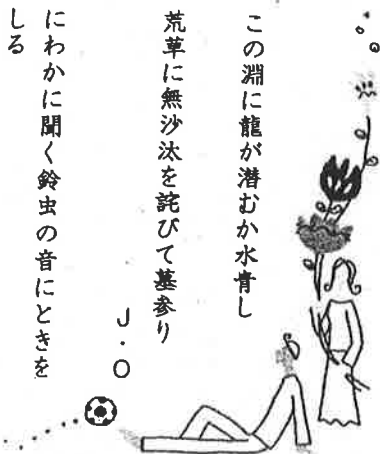 この淵に龍が潜むか水青し
荒草に無沙汰を詫びて墓参り
J.O
にわかに聞く鈴虫の音にときを
しる